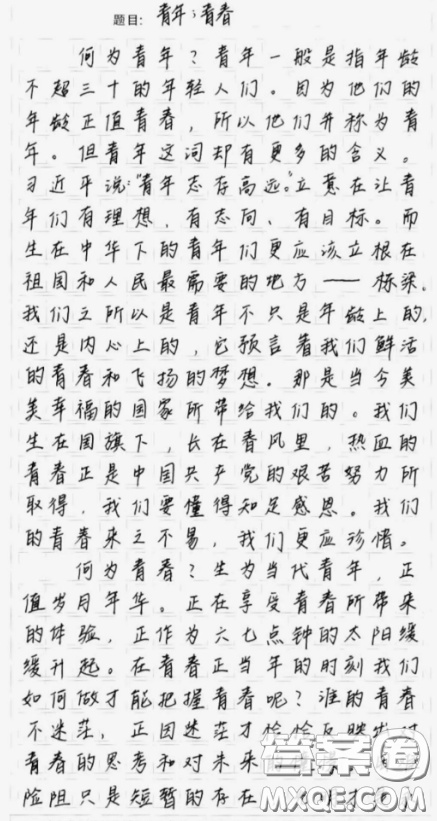 题目: 青年;青春
何为青年?青年一般是指年龄
不超三十的年轻人们。因为他们的
年龄正值青春,所以他们并称为青
年。但青年这词却有更多的含义。
习近平说:"青年志存高远。"立意在让青
年们有理想,有志向、有目标。而
生在中华下的青年们更应该立根在
祖国和人民最需要的地方——栋梁。
我们之所以是青年不只是年龄上的,
还是内心上的,它预言着我们鲜活
的青春和飞扬的梦想。那是当今美
美幸福的国家所带给我们的。我们
生在国旗下,长在春风里,热血的
青春正是中国共产党的艰苦努力所
取得,我们要懂得知足感恩。我们
的青春来之不易,我们更应珍惜。
何为青春?生为当代青年,正
值岁月年华。正在享受青春所带来
的体验,正作为六七点钟的太阳缓
缓升起。在青春正当年的时刻我们
如何做才能把握青春呢?谁的青春
不迷茫,正因迷茫才恰恰反映出对
青春的思考和对未来
险阻只是短暂的存在
答案圈
MXQE.COM